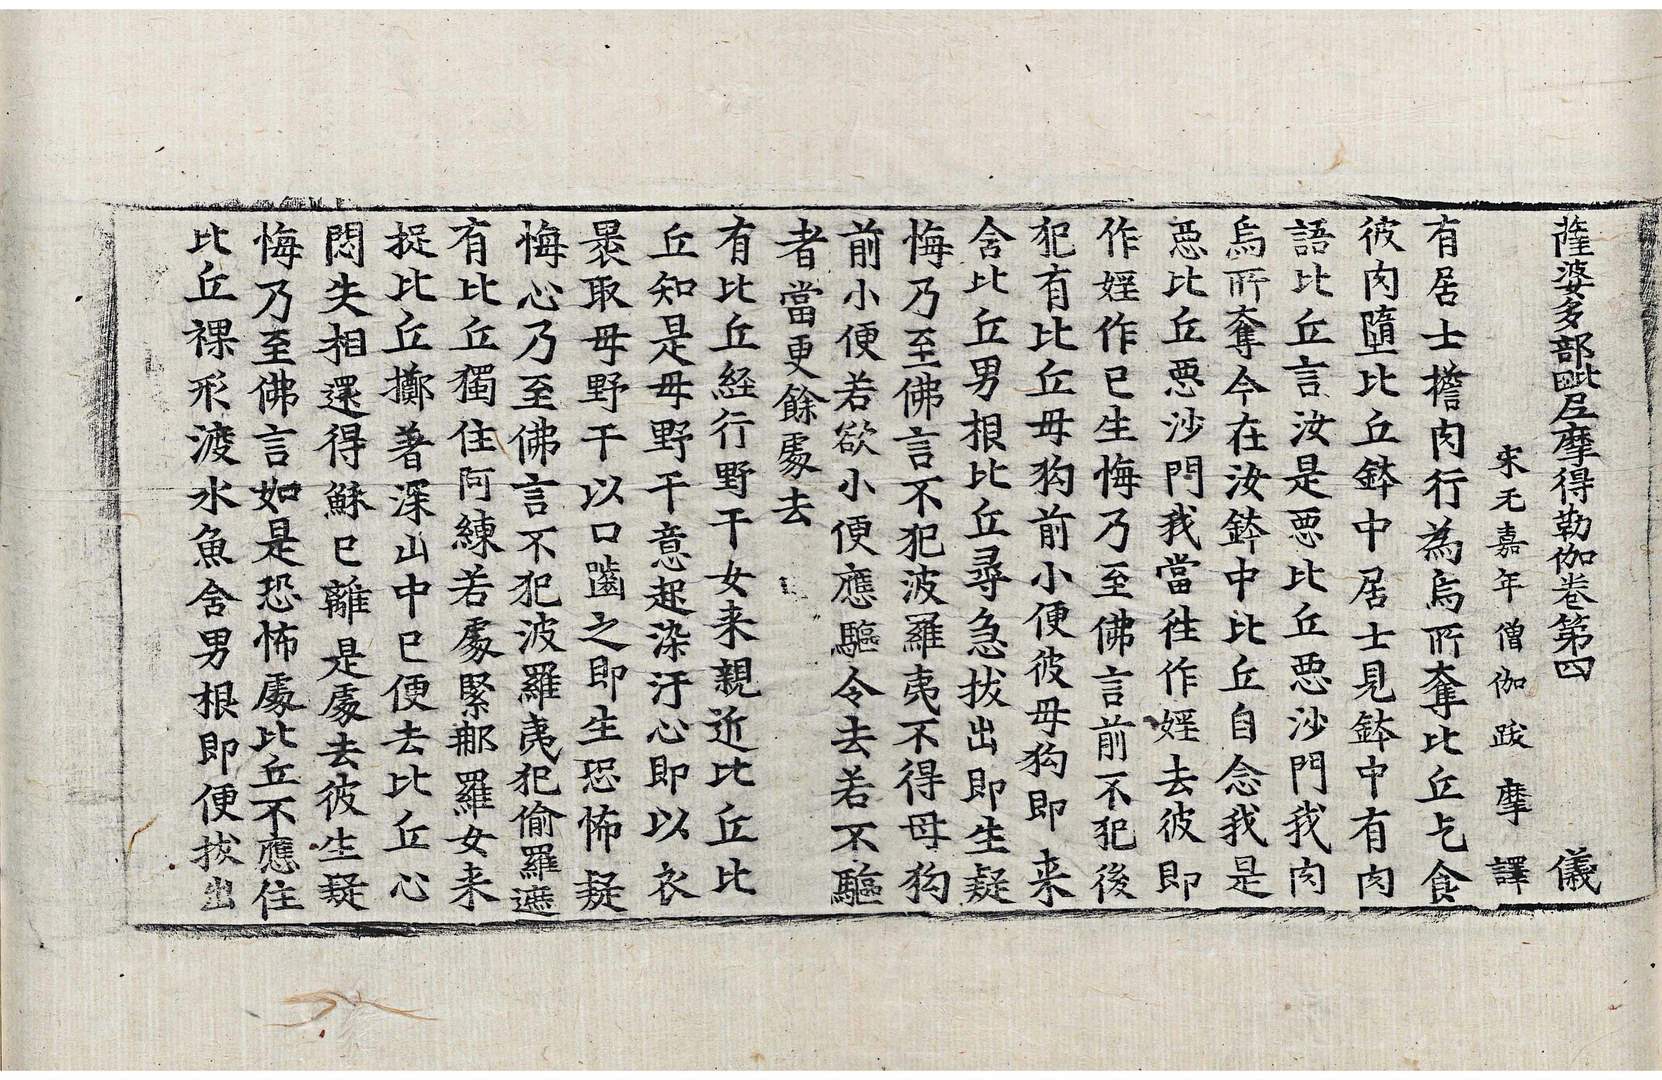 薩婆多部毗尼摩得勒伽卷第四　儀
宋元嘉年僧伽跋摩　譯
有居士擔肉行為烏所奪比丘乞食
彼肉墮比丘鉢中居士見鉢中有肉
語比丘言汝是惡比丘惡沙門我肉
烏所奪今在汝鉢中比丘自念我是
惡比丘惡沙門我當往作婬去彼即
作婬作已生悔乃至佛言前不犯後
犯有比丘母狗前小便彼母狗即来
含比丘男根比丘尋急拔出即生疑
悔乃至佛言不犯波羅夷不得母狗
前小便若欲小便應驅令去若不驅
者當更餘處去
有比丘経行野干女来親近比丘比
丘知是母野干意起染汙心即以衣
褁取母野干以口嚙之即生恐怖疑
悔心乃至佛言不犯波羅夷犯偷羅遮
有比丘獨住阿練若處緊那羅女来
捉比丘擲著深山中已便去比丘心
悶失相還得穌已離是處去彼生疑
悔乃至佛言如是恐怖處比丘不應住
比丘裸形渡水魚含男根即便拔出